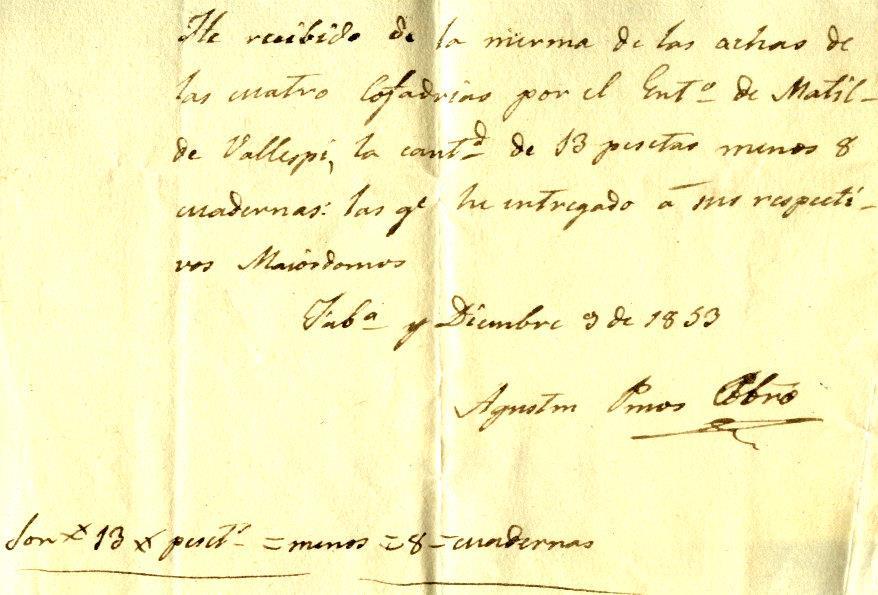 He recibido de la merma de las achas de
las cuatro Cofadrias por el Entº de Matil-
de Vallespi, la cantᵈ de 13 pesetas menos 8
cuadernas: las qᵉ he entregado á sus respecti-
vos Maiordomos
Fabª y Diembre 9 de 1853
Agustin Pbro
Son x 13 x pesetˢ = menos = 8 = cuadernas